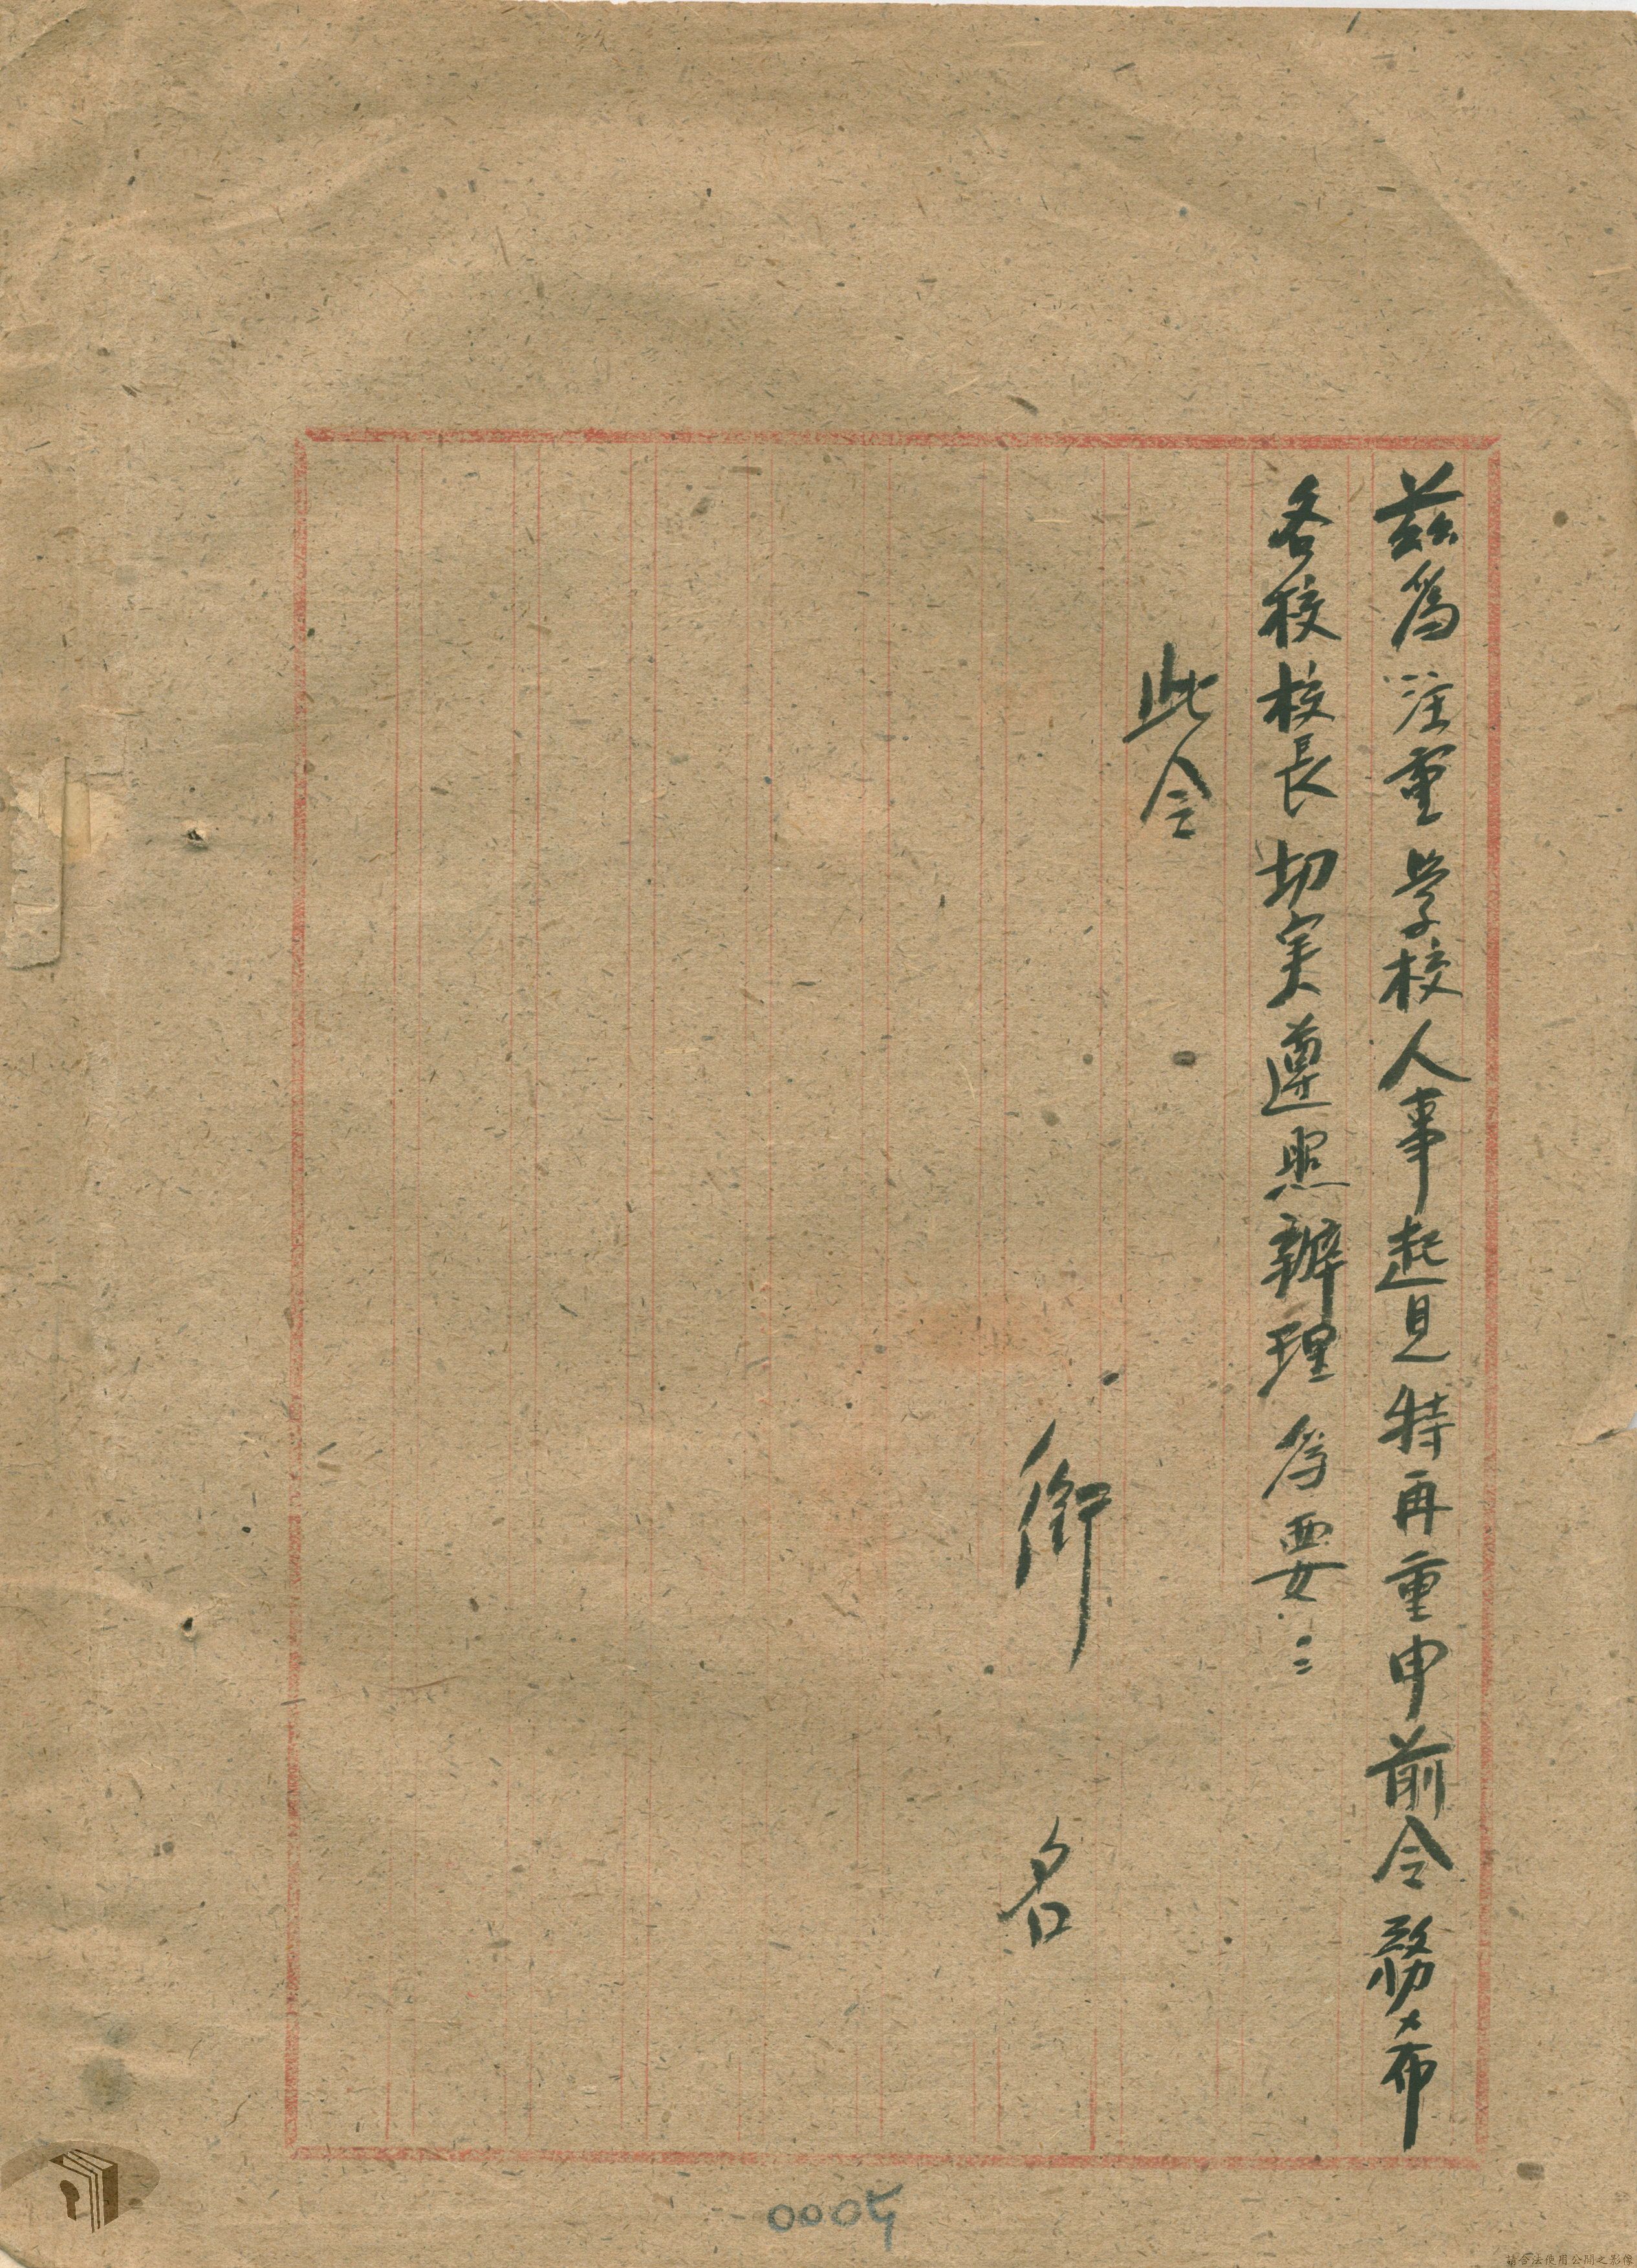 茲為注重学校人事起見特再重申前令務希
各校校長切实遵照辦理為要〻
此令
銜名
0005
請合法使用公開之影像